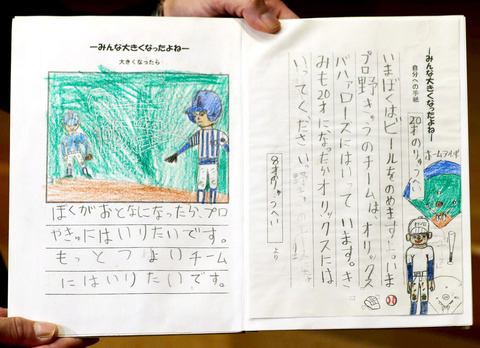 ーみんな大きくなったよねー
大きくなったら
ぼくがおとなになったら、プロ
やきゅうにはいりたいです。
もっとつよいチーム
にはいりたいです。
ーみんな大きくなったよねー
自分への手紙
20才のりゅうへい
いまぼくはビールをのめます!。いま
プロ野きゅうのチームは、オリックス
バハァローズにはいっています。き
みも20才になったらオリックスには
いってください。
8才のりゅうへい より